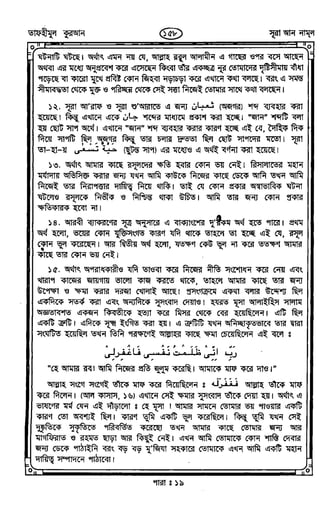 তাফহীমুল কুরআন
১৫৮
সূরা আন নামল
ঘটনাটি ঘটছে। অর্থাৎ এমন নয় যে, আল্লাহ রব্বুল আলামীন এ গাছের ওপর বসে আছেন
অথবা এর মধ্যে অনুপ্রবেশ করে এসেছেন কিংবা তাঁর একচ্ছত্র নূর তোমাদের দৃষ্টিসীমায় বাঁধা
পড়েছে বা কারো মুখে প্রবিষ্ট কোন জিহ্বা নড়াচড়া করে এখানে কথা বলছে। বরং এ সমস্ত
সীমাবদ্ধতা থেকে মুক্ত ও পরিচ্ছন্ন থেকে সেই সত্তা নিজেই তোমার সাথে কথা বলছেন।
১২. সূরা আ'রাফ ও সূরা শু'আরাতে এ জন্য ثعبان (অজগর) শব্দ ব্যবহার করা
হয়েছে। কিন্তু এখানে একে جان শব্দের মাধ্যমে প্রকাশ করা হচ্ছে। "জান" শব্দটি বলা
হয় ছোট সাপ অর্থে। এখানে "জান" শব্দ ব্যবহার করার কারণ হচ্ছে এই যে, দৈহিক দিক
দিয়ে সাপটি ছিল অজগর কিন্তু তার চলার দ্রুততা ছিল ছোট সাপদের মতো। সূরা
তা-হা-য় حية تسعى (ছুটন্ত সাপ) এর মধ্যেও এ অর্থই বর্ণনা করা হয়েছে।
১৩. অর্থাৎ আমার কাছে রসূলদের ক্ষতি হবার কোন ভয় নেই। রিসালাতের মহান
মর্যাদায় অভিষিক্ত করার জন্য যখন আমি কাউকে নিজের কাছে ডেকে আনি তখন আমি
নিজেই তার নিরাপত্তার দায়িত্ব নিয়ে থাকি। তাই যে কোন প্রকার অস্বাভাবিক ঘটনা
ঘটলেও রসূলকে নির্ভীক ও নিশ্চিন্ত থাকা উচিত। আমি তার জন্য কোন প্রকার
ক্ষতিকারক হবো না।
১৪. আরবী ব্যাকরণের সূত্র অনুসারে এ বাক্যাংশের দু'রকম অর্থ হতে পারে। প্রথম
অর্থ হলো, ভয়ের কোন যুক্তিসংগত কারণ যদি থাকে তাহলে তা হচ্ছে এই যে, রসূল
কোন ভুল করেছেন। আর দ্বিতীয় অর্থ হলো, যতক্ষণ কেউ ভুল না করে ততক্ষণ আমার
কাছে তার কোন ভয় নেই।
১৫. অর্থাৎ অপরাধকারীও যদি তাওবা করে নিজের নীতি সংশোধন করে নেয় এবং
খারাপ কাজের জায়গায় ভালো কাজ করতে থাকে, তাহলে আমার কাছে তার জন্য
উপেক্ষা ও ক্ষমা করার দরজা খোলাই আছে। প্রসংগক্রমে একথা বলার উদ্দেশ্য ছিল
একদিকে সতর্ক করা এবং অন্যদিকে সুসংবাদ দেয়াও। হযরত মূসা আলাইহিস সালাম
অজ্ঞতাবশত একজন কিবতীকে হত্যা করে মিসর থেকে বের হয়েছিলেন। এটি ছিল
একটি ত্রুটি। এদিকে সূক্ষ্ম ইংগিত করা হয়। এ ত্রুটিটি যখন অনিচ্ছাকৃতভাবে তার দ্বারা
সংঘটিত হয়েছিল তখন তিনি পরক্ষণেই আল্লাহর কাছে ক্ষমা চেয়েছিলেন এই বলে :
رب انى ظلمت نفسى فاغفرلى
"হে আমার রব! আমি নিজের প্রতি জুলুম করেছি। আমাকে মাফ করে দাও।"
আল্লাহ সংগে সংগেই তাঁকে মাফ করে দিয়েছিলেন : فغفرله আল্লাহ তাঁকে মাফ
করে দিলেন। (আল কাসাস, ১৬) এখানে সেই ক্ষমার সুসংবাদ তাঁকে দেয়া হয়। অর্থাৎ এ
ভাষণের মর্ম যেন এই দাঁড়ালো : হে মূসা! আমার সামনে তোমার ভয় পাওয়ার একটি
কারণ তো অবশ্যই ছিল। কারণ তুমি একটি ভুল করেছিলে। কিন্তু তুমি যখন সেই
দুষ্কৃতিকে সুকৃতিতে পরিবর্তিত করেছো তখন আমার কাছে তোমার জন্য আর
মাগফিরাত ও রহমত ছাড়া আর কিছুই নেই। এখন আমি তোমাকে কোন শাস্তি দেবার
জন্য ডেকে পাঠাইনি বরং বড় বড় মু'জিযা সহকারে তোমাকে এখন আমি একটি মহান
দায়িত্ব সম্পাদনে পাঠাবো।
পারা : ১৯